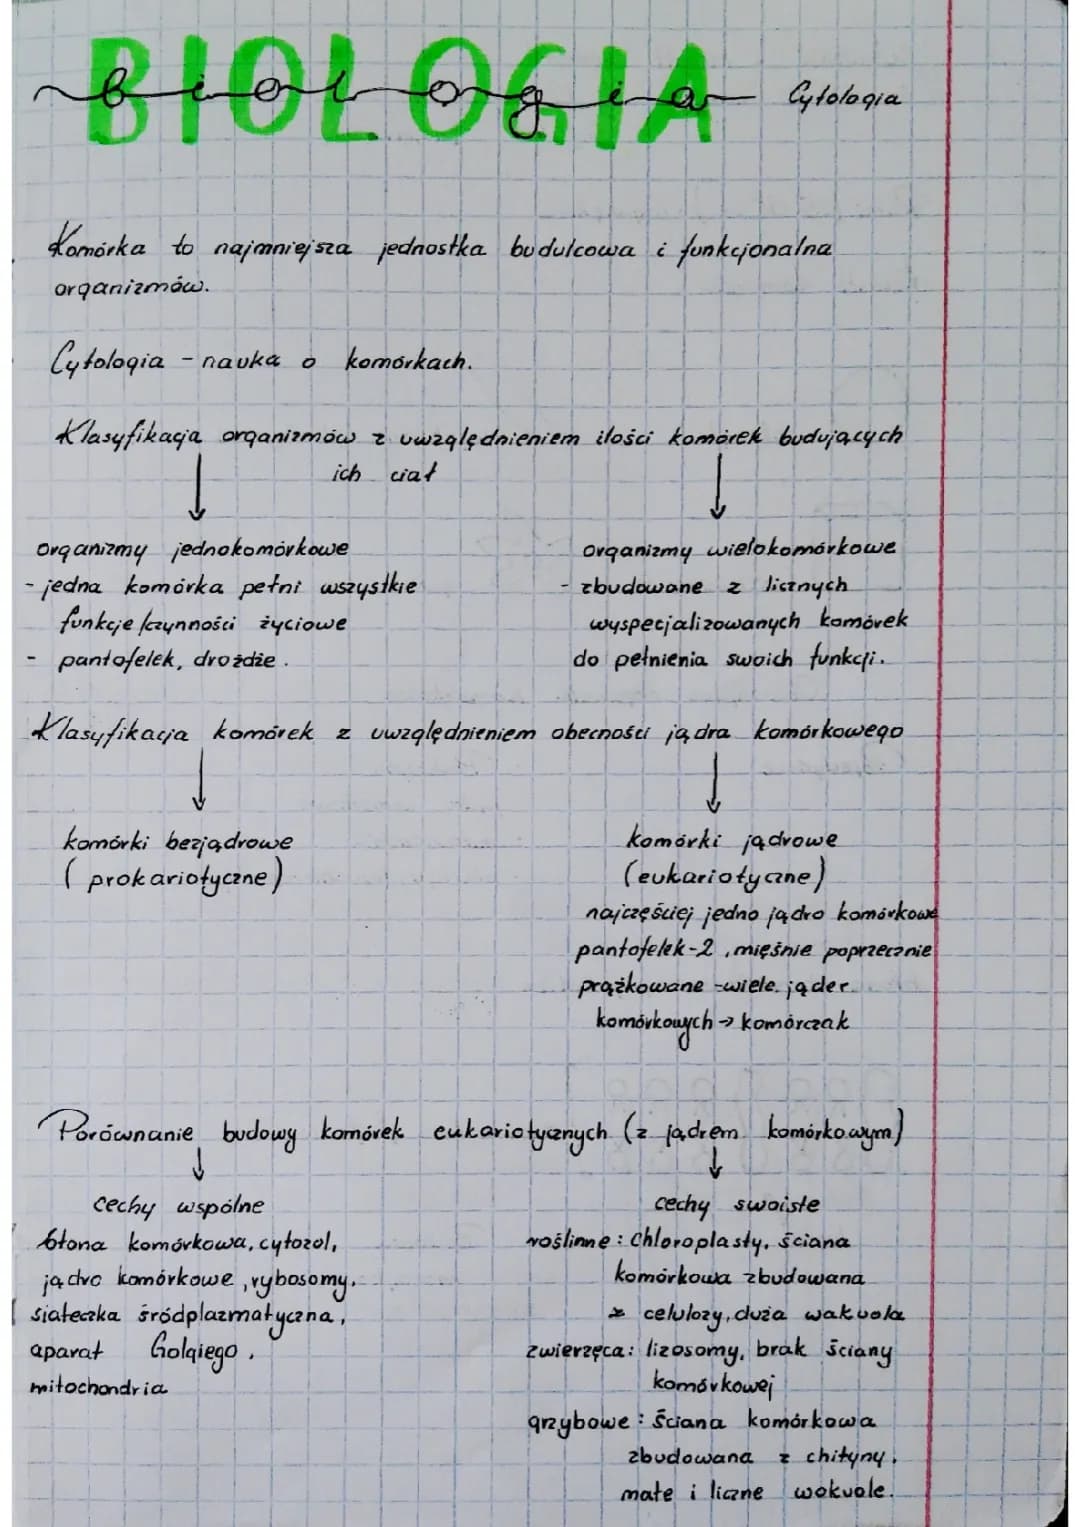 BIOLOGIA
biologia
Cytologia
Komórka to najmniejsza jednostka budulcowa i funkcjonalna
organizmów.
Cytologia - nauka o komórkach.
Klasyfikacja organizmów z uwzględnieniem ilości komórek budujących
ich ciał
organizmy jednokomórkowe
- jedna komórka pełni wszystkie
funkcje/czynności życiowe
- pantofelek, drożdże.
organizmy wielokomórkowe
- zbudowane z licznych
wyspecjalizowanych komórek
do pełnienia swoich funkcji.
Klasyfikacja komórek z uwzględnieniem obecności jądra komórkowego
komórki bezjądrowe
(prokariotyczne)
komórki jądrowe
(eukariotyczne)
najczęściej jedno jądro komórkowe
pantofelek-2, mięśnie poprzecznie
prążkowane -wiele jąder
komórkowych → komórczak
Porównanie budowy komórek eukariotycznych (z jądrem komórkowym)
cechy wspólne
błona komórkowa, cytozol,
jądro komórkowe, rybosomy,
siateczka śródplazmatyczna,
aparat Golgiego,
mitochondria
cechy swoiste
roślinne: Chloroplasty, ściana
komórkowa zbudowana
z celulozy, duża wakuola
zwierzęca: lizosomy, brak ściany
komórkowej
grzybowe: ściana komórkowa
zbudowana z chityny,
małe i liczne wakuole.